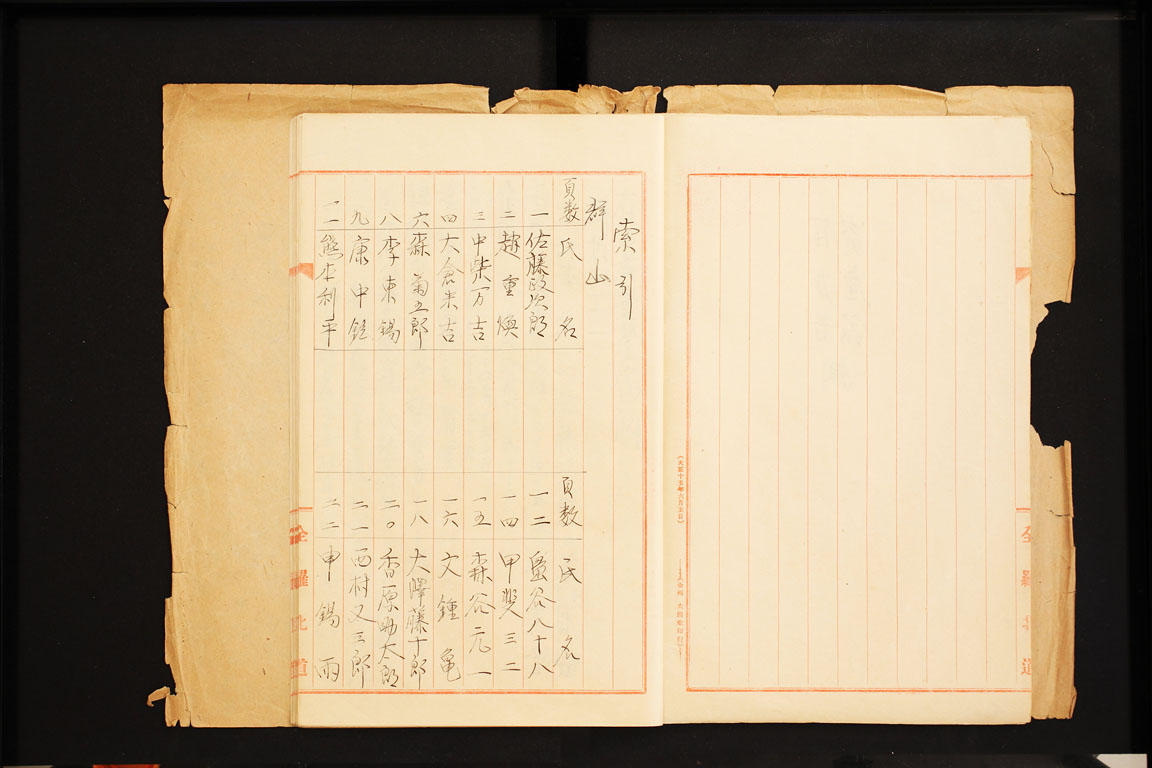 索引
群山
頁数 氏名
一 佐藤政次郎
二 趙重煥
三 中柴万吉
四 大倉米吉
六 森菊五郎
八 李東錫
九 康中銓
一一 熊本利平
頁数 氏名
一二 畠谷八十八
一四 甲斐三二
一五 森谷元一
一六 文鍾亀
一八 大澤藤十郎
二〇 香原助太郎
二一 西村又三郎
二二 申錫雨
全羅北道